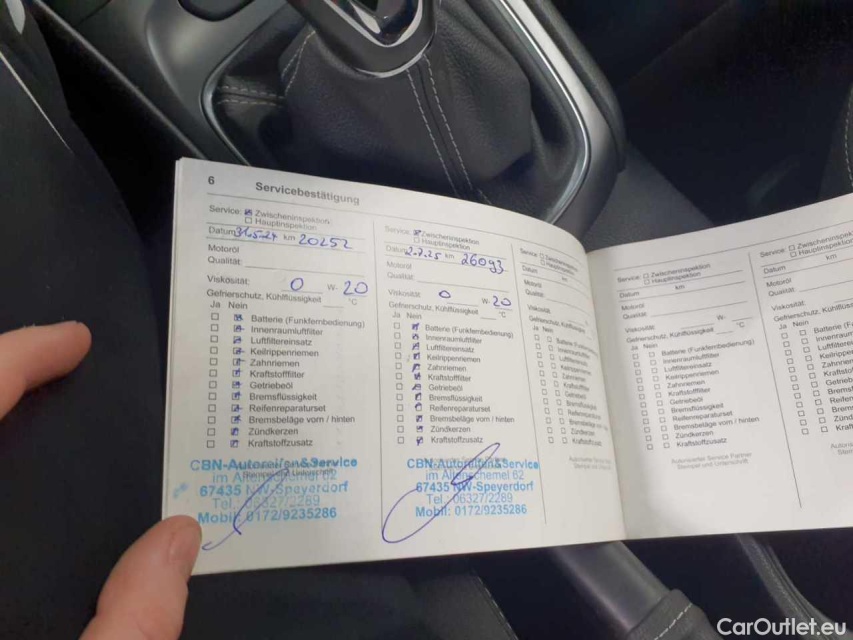 6 Servicebestätigung
Service: Zwischeninspektion
Hauptinspektion
Datum 31.5.24 km 20252
Motoröl
Qualität:
Viskosität: 0 W- 20
Gefrierschutz, Kühlflüssigkeit °C
Ja Nein
Batterie (Funkfernbedienung)
Innenraumluftfilter
Luftfiltereinsatz
Keilrippenriemen
Zahnriemen
Kraftstofffilter
Getriebeöl
Bremsflüssigkeit
Reifenreparaturset
Bremsbeläge vorn / hinten
Zündkerzen
Kraftstoffzusatz
CBN-Autoreifen&Service
im Altenschemel 62
67435 NW-Speyerdorf
Tel.: 06327/2289
Mobil: 0172/9235286
Service: Zwischeninspektion
Hauptinspektion
Datum 2.7.25 km 26093
Motoröl
Qualität:
Viskosität: 0 W- 20
Gefrierschutz, Kühlflüssigkeit °C
Ja Nein
Batterie (Funkfernbedienung)
Innenraumluftfilter
Luftfiltereinsatz
Keilrippenriemen
Zahnriemen
Kraftstofffilter
Getriebeöl
Bremsflüssigkeit
Reifenreparaturset
Bremsbeläge vorn / hinten
Zündkerzen
Kraftstoffzusatz
CBN-Autoreifen&Service
im Altenschemel 62
67435 NW-Speyerdorf
Tel.: 06327/2289
Mobil: 0172/9235286
Service: Zwischeninspektion
Hauptinspektion
Datum km
Motoröl
Qualität:
Viskosität:
Gefrierschutz, Kühlflüssigkeit
Ja Nein
Service: Zwischeninspektion
Hauptinspektion
Datum km
Motoröl
Qualität:
Viskosität: W-
Gefrierschutz, Kühlflüssigkeit °C
Ja Nein
Batterie (Funkfernbedienung)
Innenraumluftfilter
Luftfiltereinsatz
Keilrippenriemen
Zahnriemen
Kraftstofffilter
Getriebeöl
Bremsflüssigkeit
Reifenreparaturset
Bremsbeläge vorn / hinten
Zündkerzen
Kraftstoffzusatz
Autorisierter Service Partner
Stempel und Unterschrift
Service: Zwischeninspektion
Hauptinspektion
Datum km
Motoröl
Qualität:
Viskosität:
Gefrierschutz, Kühlflüssigkeit
Ja Nein
CarOutlet.eu